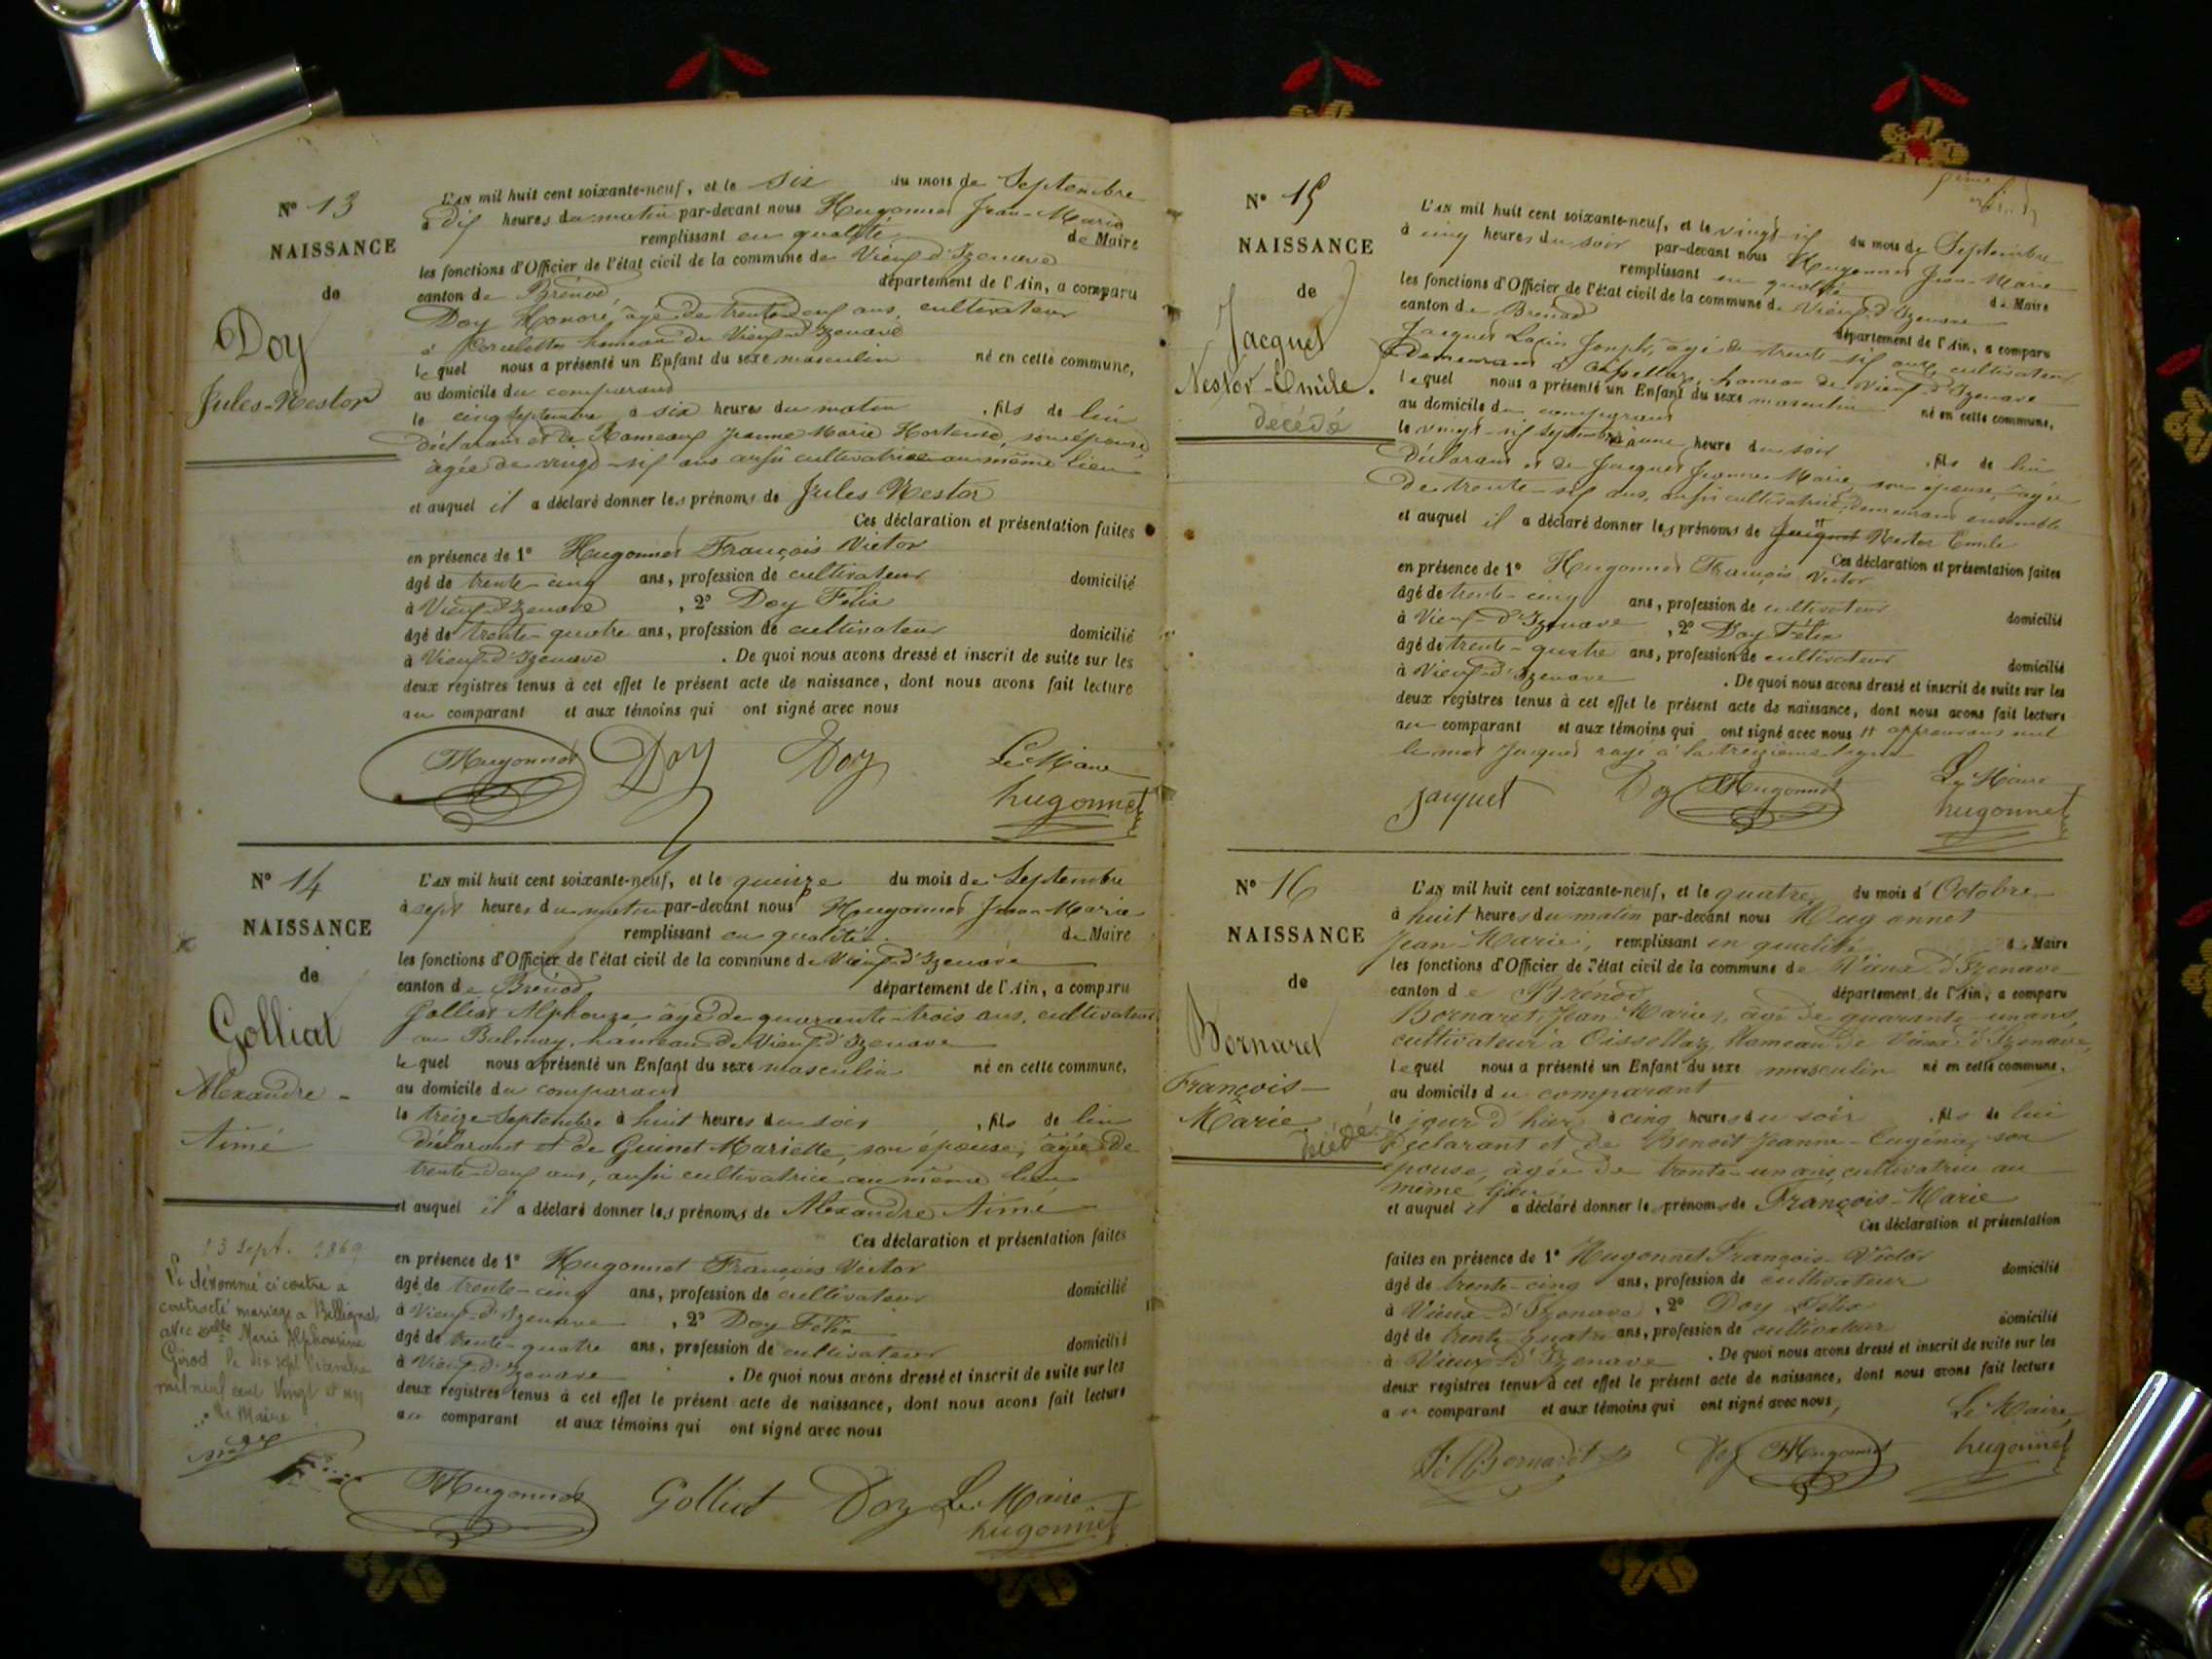 N° 13
NAISSANCE
de
Doy
Jules-Nestor
L'AN mil huit cent soixante-neuf, et le Six du mois de Septembre
à dix heures du matin par-devant nous Hugonnet Jean-Marie
remplissant en qualité de Maire
les fonctions d'Officier de l'état civil de la commune de Vieux-d'Izenave
canton de Brénod, département de l'Ain, a comparu
Doy Honoré, âgé de trente-deux ans, cultivateur
à hameau de Vieux-d'Izenave
lequel nous a présenté un Enfant du sexe masculin né en cette commune,
au domicile du comparant
le cinq Septembre à six heures du matin , fils de lui
déclarant et de Rameaux Jeanne Marie Hortense, son épouse
âgée de vingt-six ans aussi cultivatrice au même lieu
et auquel il a déclaré donner les prénoms de Jules Nestor
Ces déclaration et présentation faites
en présence de 1° Hugonnet François Victor
âgé de trente-cinq ans, profession de cultivateur domicilié
à Vieux-d'Izenave , 2° Doy Félix
âgé de trente-quatre ans, profession de cultivateur domicilié
à Vieux-d'Izenave . De quoi nous avons dressé et inscrit de suite sur les
deux registres tenus à cet effet le présent acte de naissance, dont nous avons fait lecture
au comparant et aux témoins qui ont signé avec nous
Hugonnet Doy Doy Le Maire
hugonnet
N° 14
NAISSANCE
de
Golliat
Alexandre-
Aimé
L'AN mil huit cent soixante-neuf, et le quinze du mois de Septembre
à sept heures du matin par-devant nous Hugonnet Jean-Marie
remplissant en qualité de Maire
les fonctions d'Officier de l'état civil de la commune de Vieux-d'Izenave
canton de Brénod département de l'Ain, a comparu
Golliat Alphonze, âgé de quarante-trois ans, cultivateur
au Balmay, hameau de Vieux-d'Izenave
lequel nous a présenté un Enfant du sexe masculin né en cette commune,
au domicile du comparant
le treize Septembre à huit heures du soir , fils de lui
déclarant et de Guinet Mariette, son épouse, âgée de
trente-deux ans, aussi cultivatrice au même lieu
et auquel il a déclaré donner les prénoms de Alexandre Aimé
Ces déclaration et présentation faites
en présence de 1° Hugonnet François Victor
âgé de trente-cinq ans, profession de cultivateur domicilié
à Vieux-d'Izenave , 2° Doy Félix
âgé de trente-quatre ans, profession de cultivateur domicilié
à Vieux-d'Izenave . De quoi nous avons dressé et inscrit de suite sur les
deux registres tenus à cet effet le présent acte de naissance, dont nous avons fait lecture
au comparant et aux témoins qui ont signé avec nous
13 Sept. 1869
Le dénommé ci contre a
contracté mariage a Bellignat
avec Delle Marie Alphonsine
Girod le dix sept Décembre
mil neuf cent vingt et un
Le Maire
Hugonnet Golliat Doy Le Maire
hugonnet
N° 15
NAISSANCE
de
Jacquet
Nestor-Emile.
décédé
L'AN mil huit cent soixante-neuf, et le vingt-six du mois de Septembre
à cinq heures du soir par-devant nous Hugonnet Jean-Marie
remplissant en qualité de Maire
les fonctions d'Officier de l'état civil de la commune de Vieux-d'Izenave
canton de Brénod département de l'Ain, a comparu
Jacquet Joseph, âgé de trente-six ans, cultivateur
demeurant à hameau de Vieux-d'Izenave
lequel nous a présenté un Enfant du sexe masculin né en cette commune,
au domicile du comparant
le vingt-six Septembre à une heure du soir , fils de lui
déclarant et de Jacquet Jeanne Marie, son épouse, âgée
de trente-six ans, aussi cultivatrice, demeurant ensemble
et auquel il a déclaré donner les prénoms de Jacquet Nestor Emile
Ces déclaration et présentation faites
en présence de 1° Hugonnet François Victor
âgé de trente-cinq ans, profession de cultivateur domicilié
à Vieux-d'Izenave , 2° Doy Félix
âgé de trente-quatre ans, profession de cultivateur domicilié
à Vieux-d'Izenave . De quoi nous avons dressé et inscrit de suite sur les
deux registres tenus à cet effet le présent acte de naissance, dont nous avons fait lecture
au comparant et aux témoins qui ont signé avec nous approuvons nul
le mot Jacquet rayé à la treizième ligne
Jacquet Doy Hugonnet Le Maire
hugonnet
N° 16
NAISSANCE
de
Bornaret
François-
Marie.
décédé
L'AN mil huit cent soixante-neuf, et le quatre du mois d'Octobre
à huit heures du matin par-devant nous Hugonnet
Jean-Marie, remplissant en qualité de Maire
les fonctions d'Officier de l'état civil de la commune de Vieux d'Izenave
canton de Brénod département de l'Ain, a comparu
Bornaret, Jean Marie, âgé de quarante un ans,
cultivateur à Oissellaz, Hameau de Vieux d'Izenave,
lequel nous a présenté un Enfant du sexe masculin né en cette commune,
au domicile du comparant
le jour d'hier à cinq heures du soir , fils de lui
Déclarant et de Benoit Jeanne-Eugénie, son
épouse, âgée de trente-un ans, cultivatrice au
même lieu
et auquel il a déclaré donner le prénom de François-Marie
Ces déclaration et présentation
faites en présence de 1° Hugonnet François-Victor
âgé de trente-cinq ans, profession de cultivateur domicilié
à Vieux-d'Izenave , 2° Doy Félix
âgé de trente-quatre ans, profession de cultivateur domicilié
à Vieux d'Izenave . De quoi nous avons dressé et inscrit de suite sur les
deux registres tenus à cet effet le présent acte de naissance, dont nous avons fait lecture
au comparant et aux témoins qui ont signé avec nous,
Bornaret Doy Hugonnet Le Maire,
hugonnet